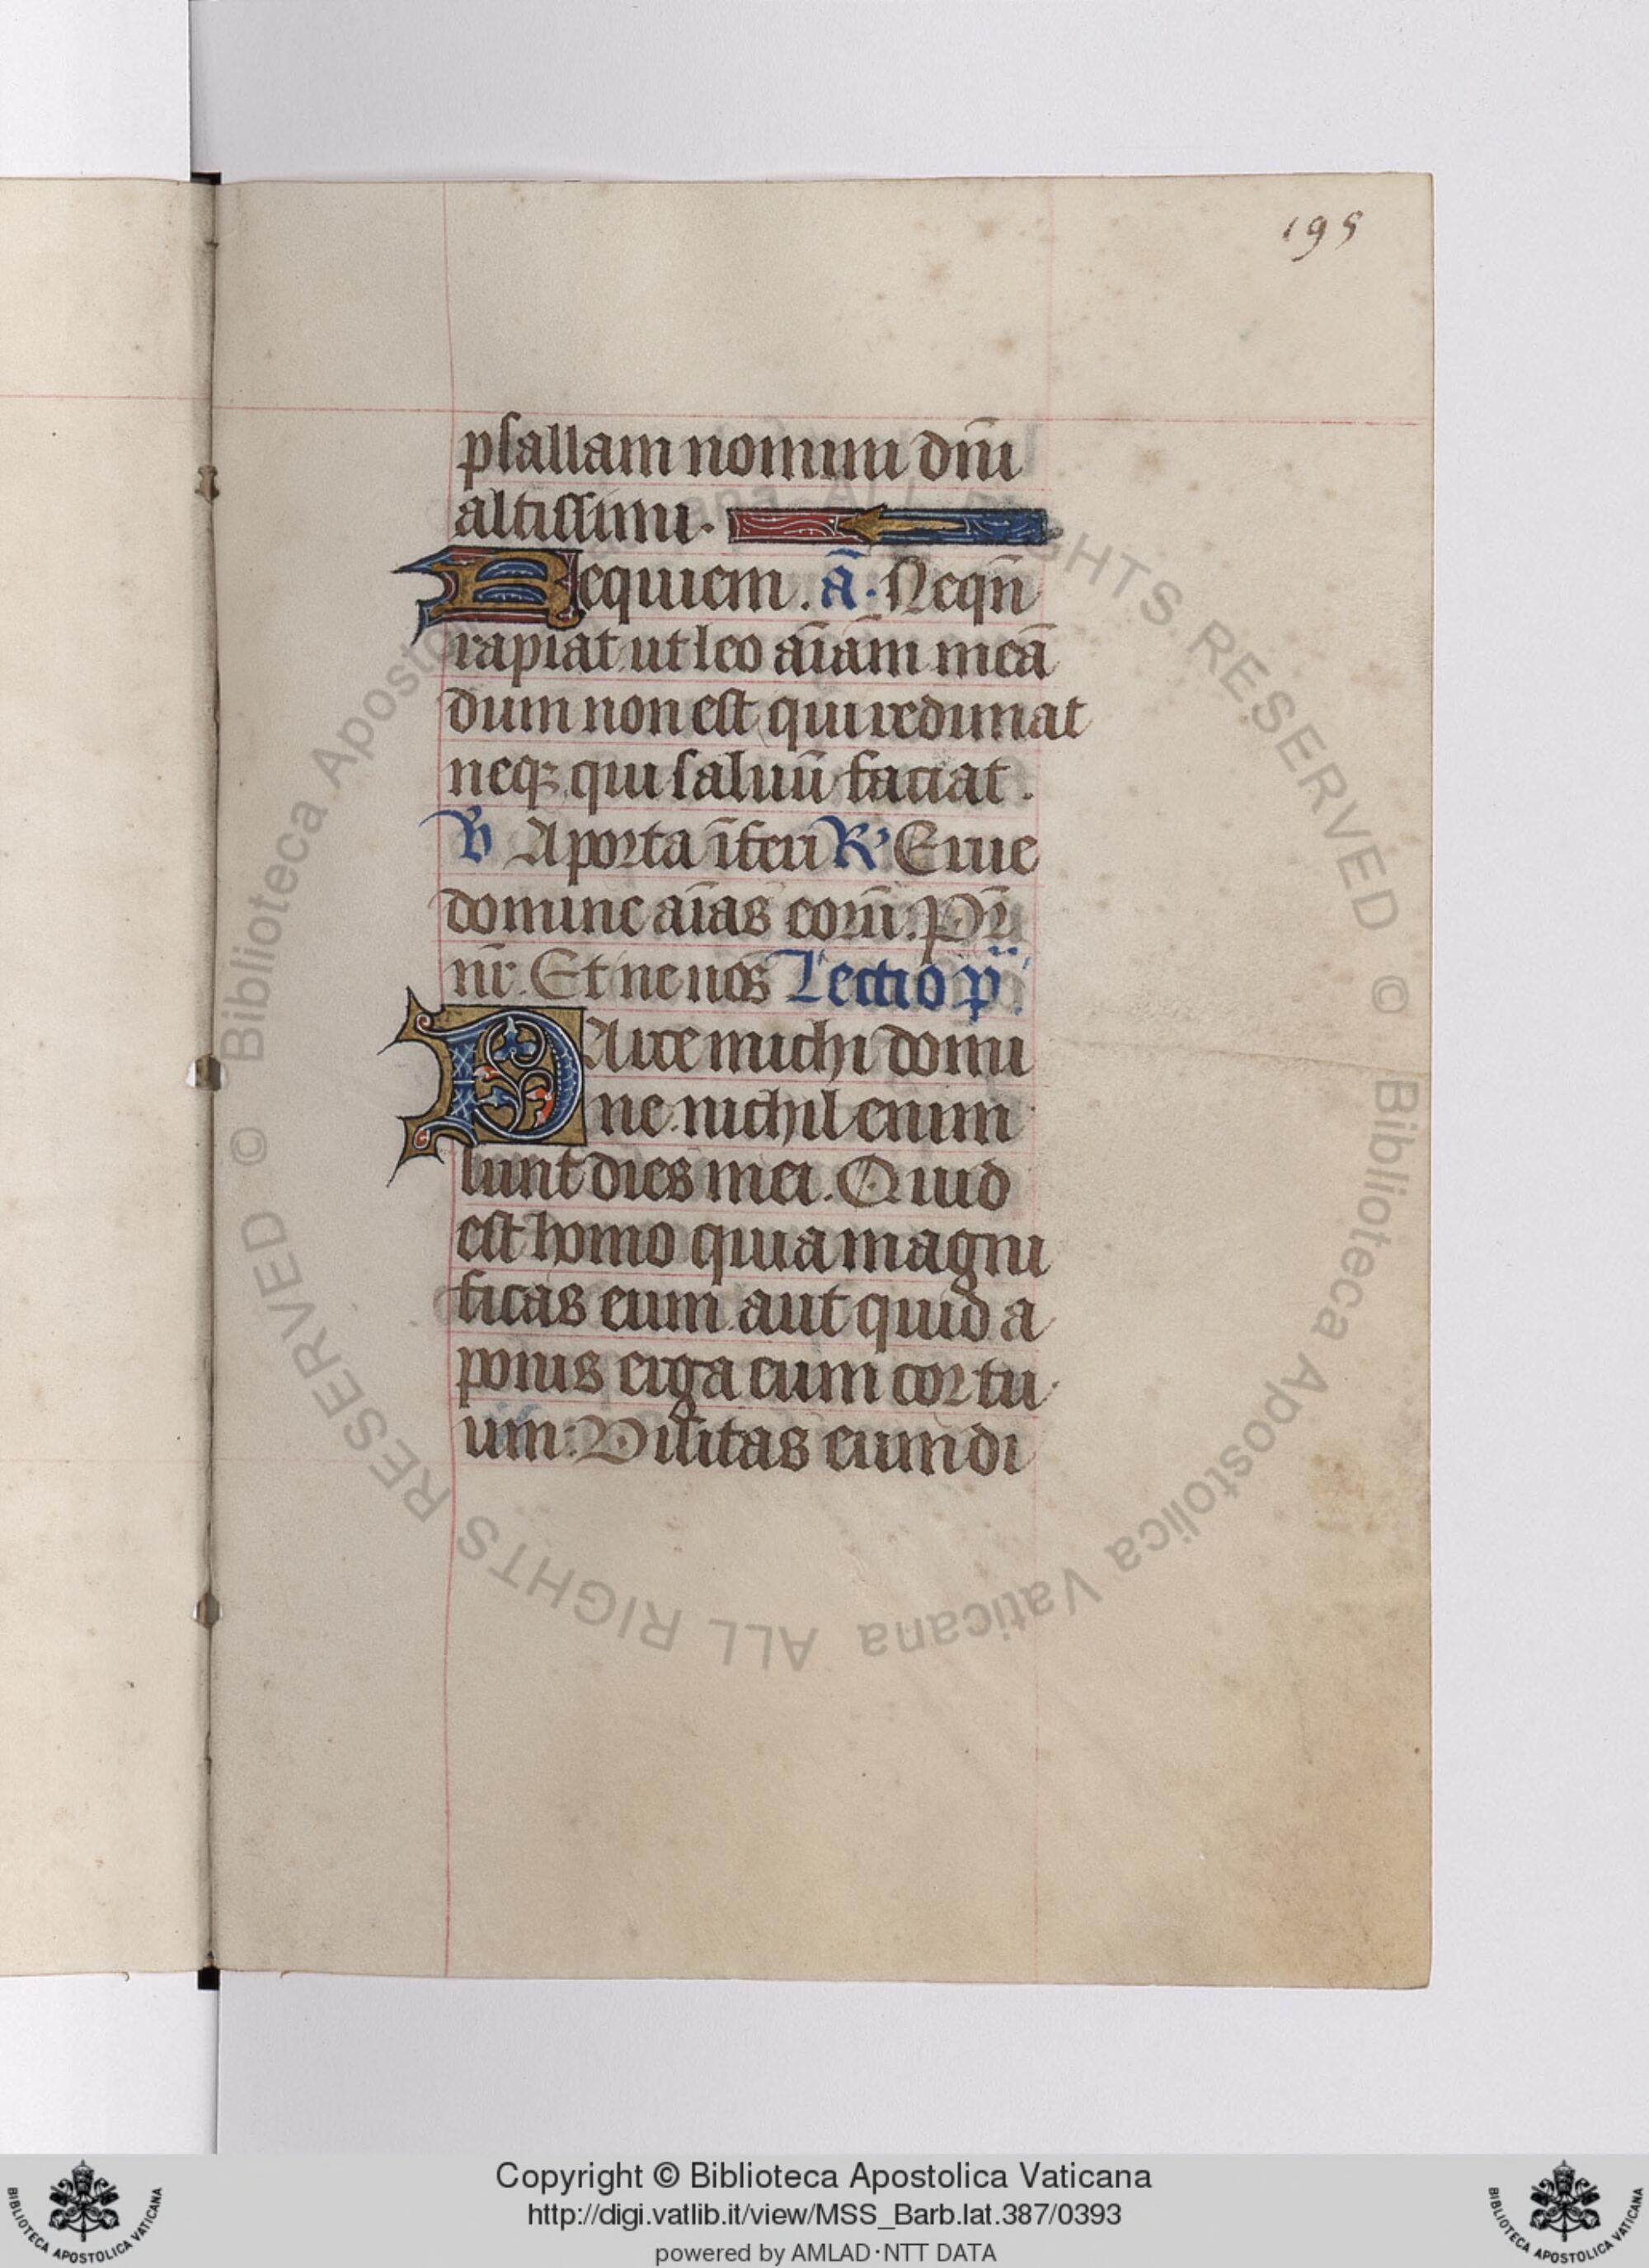 195
psallam nomini dñi
altissimi.
Requiem. ā. Neqñ
rapiat ut leo aīam meā
dum non est qui redimat
neqꝫ qui saluū faciat.
V A porta īferi R’ Erue
domine aīas eoꝝ̄. Pr̄
nr̄. Et ne nos Lectio pª
PArce michi domi
ne nichil enim
sunt dies mei. Quid
est homo quia magni
ficas eum aut quid a
ponis erga eum cor tu
um: Visitas eum di
© Biblioteca Apostolica Vaticana ALL RIGHTS RESERVED © Biblioteca Apostolica Vaticana ALL RIGHTS RESERVED
Copyright © Biblioteca Apostolica Vaticana
http://digi.vatlib.it/view/MSS_Barb.lat.387/0393
powered by AMLAD·NTT DATA
BIBLIOTECA APOSTOLICA VATICANA
BIBLIOTECA APOSTOLICA VATICANA